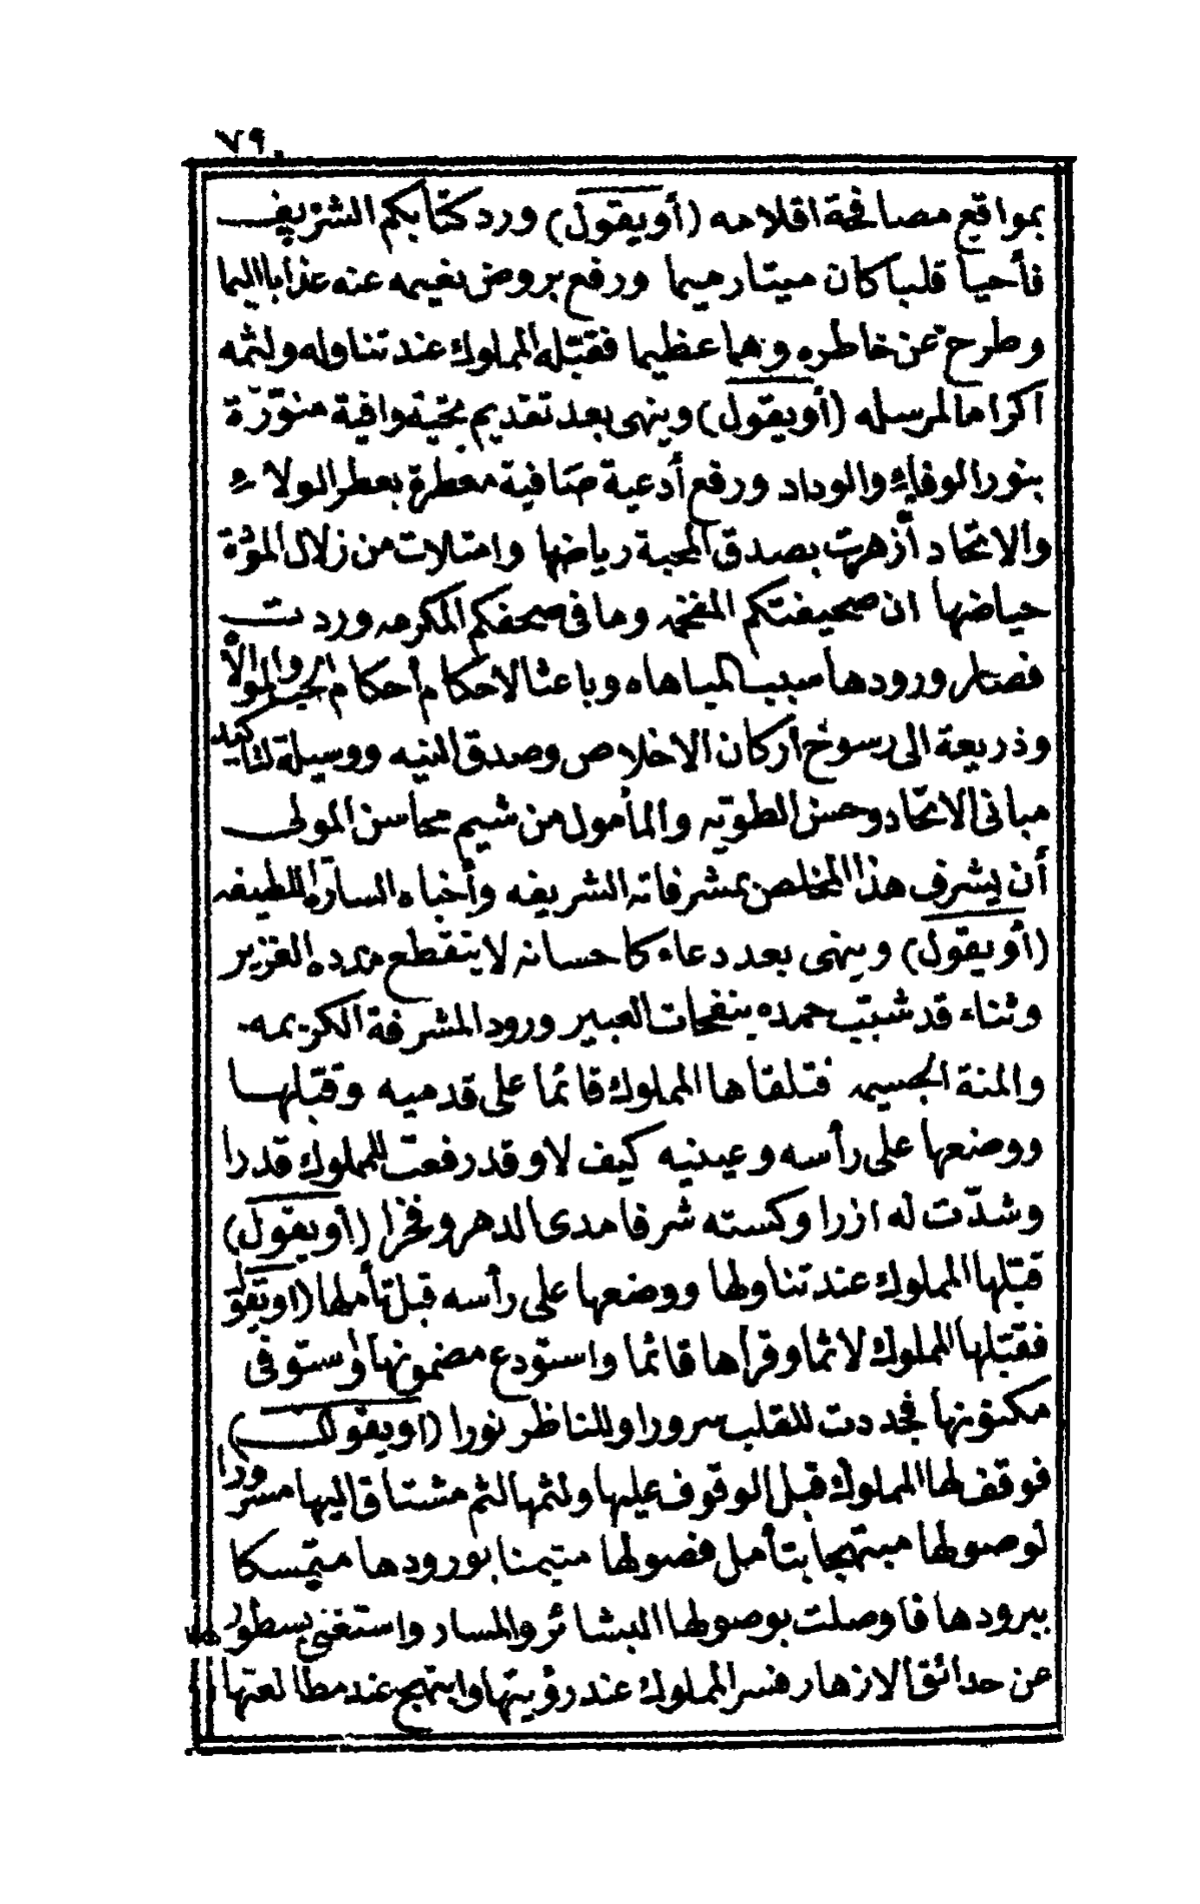 ٧٩
بمواقع مصافحة اقلامه (أو يقول) ورد كتابكم الشريف
فأحيا قلبا كان ميتا رميما ورفع بروض نعيمه عنه عذابا اليما
وطرح عن خاطره وهما عظيما فقبّله المملوك عند تناوله ولثمه
اكراما لمرسله (أو يقول) وينهى بعد تقديم تحية وافية منوّرة
بنور الوفاء والوداد ورفع أدعية صافية معطرة بعطر الولاء
والاتحاد أزهرت بصدق المحبة رياضها وامتلات من زلال المودّة
حياضها ان صحيفتكم المفخمه وما فى صحفكم المكرمه وردت
فصار ورودها سببا لمباهاه وباعثا لاحكام أحكام الحب والموالاه
وذريعة الى رسوخ أركان الاخلاص وصدق النيه ووسيلة لتأكيد
مبانى الاتحاد وحسن الطويّه والمأمول من شيم محاسن المولى
أن يشرف هذا المخلص بمشرفاته الشريفه وأخباره السارّه اللطيفه
(أو يقول) وينهى بعد دعاء كاحسانه لا ينقطع مدده الغزير
وثناء قد شبّب حمده بنفحات العبير ورود المشرفة الكريمه
والمنة الجسيمه فتلقاها المملوك قائما على قدميه وقبّلها
ووضعها على رأسه وعينيه كيف لا وقد رفعت للمملوك قدرا
وشدّت له ازرا وكسته شرفا مدى الدهر وفخرا (أو يقول)
قبّلها المملوك عند تناولها ووضعها على رأسه قبل تأملها (أو يقول
فقبّلها المملوك لاثما وقرأها قائما واستودع مضمونها واستوفى
مكنونها فجددت للقلب سرورا وللناظر نورا (أو يقول)
فوقف لها المملوك قبل الوقوف عليها ولثمها لثم مشتاق اليها مسرورا
لوصولها مبتهجا بتأمل فصولها متيمنا بورودها متمسكا
ببرودها فاوصلت بوصولها البشائر والمسار واستغنى بسطورها
عن حدائق الازهار فسر المملوك عند رؤيتها وابتهج عند مطالعتها